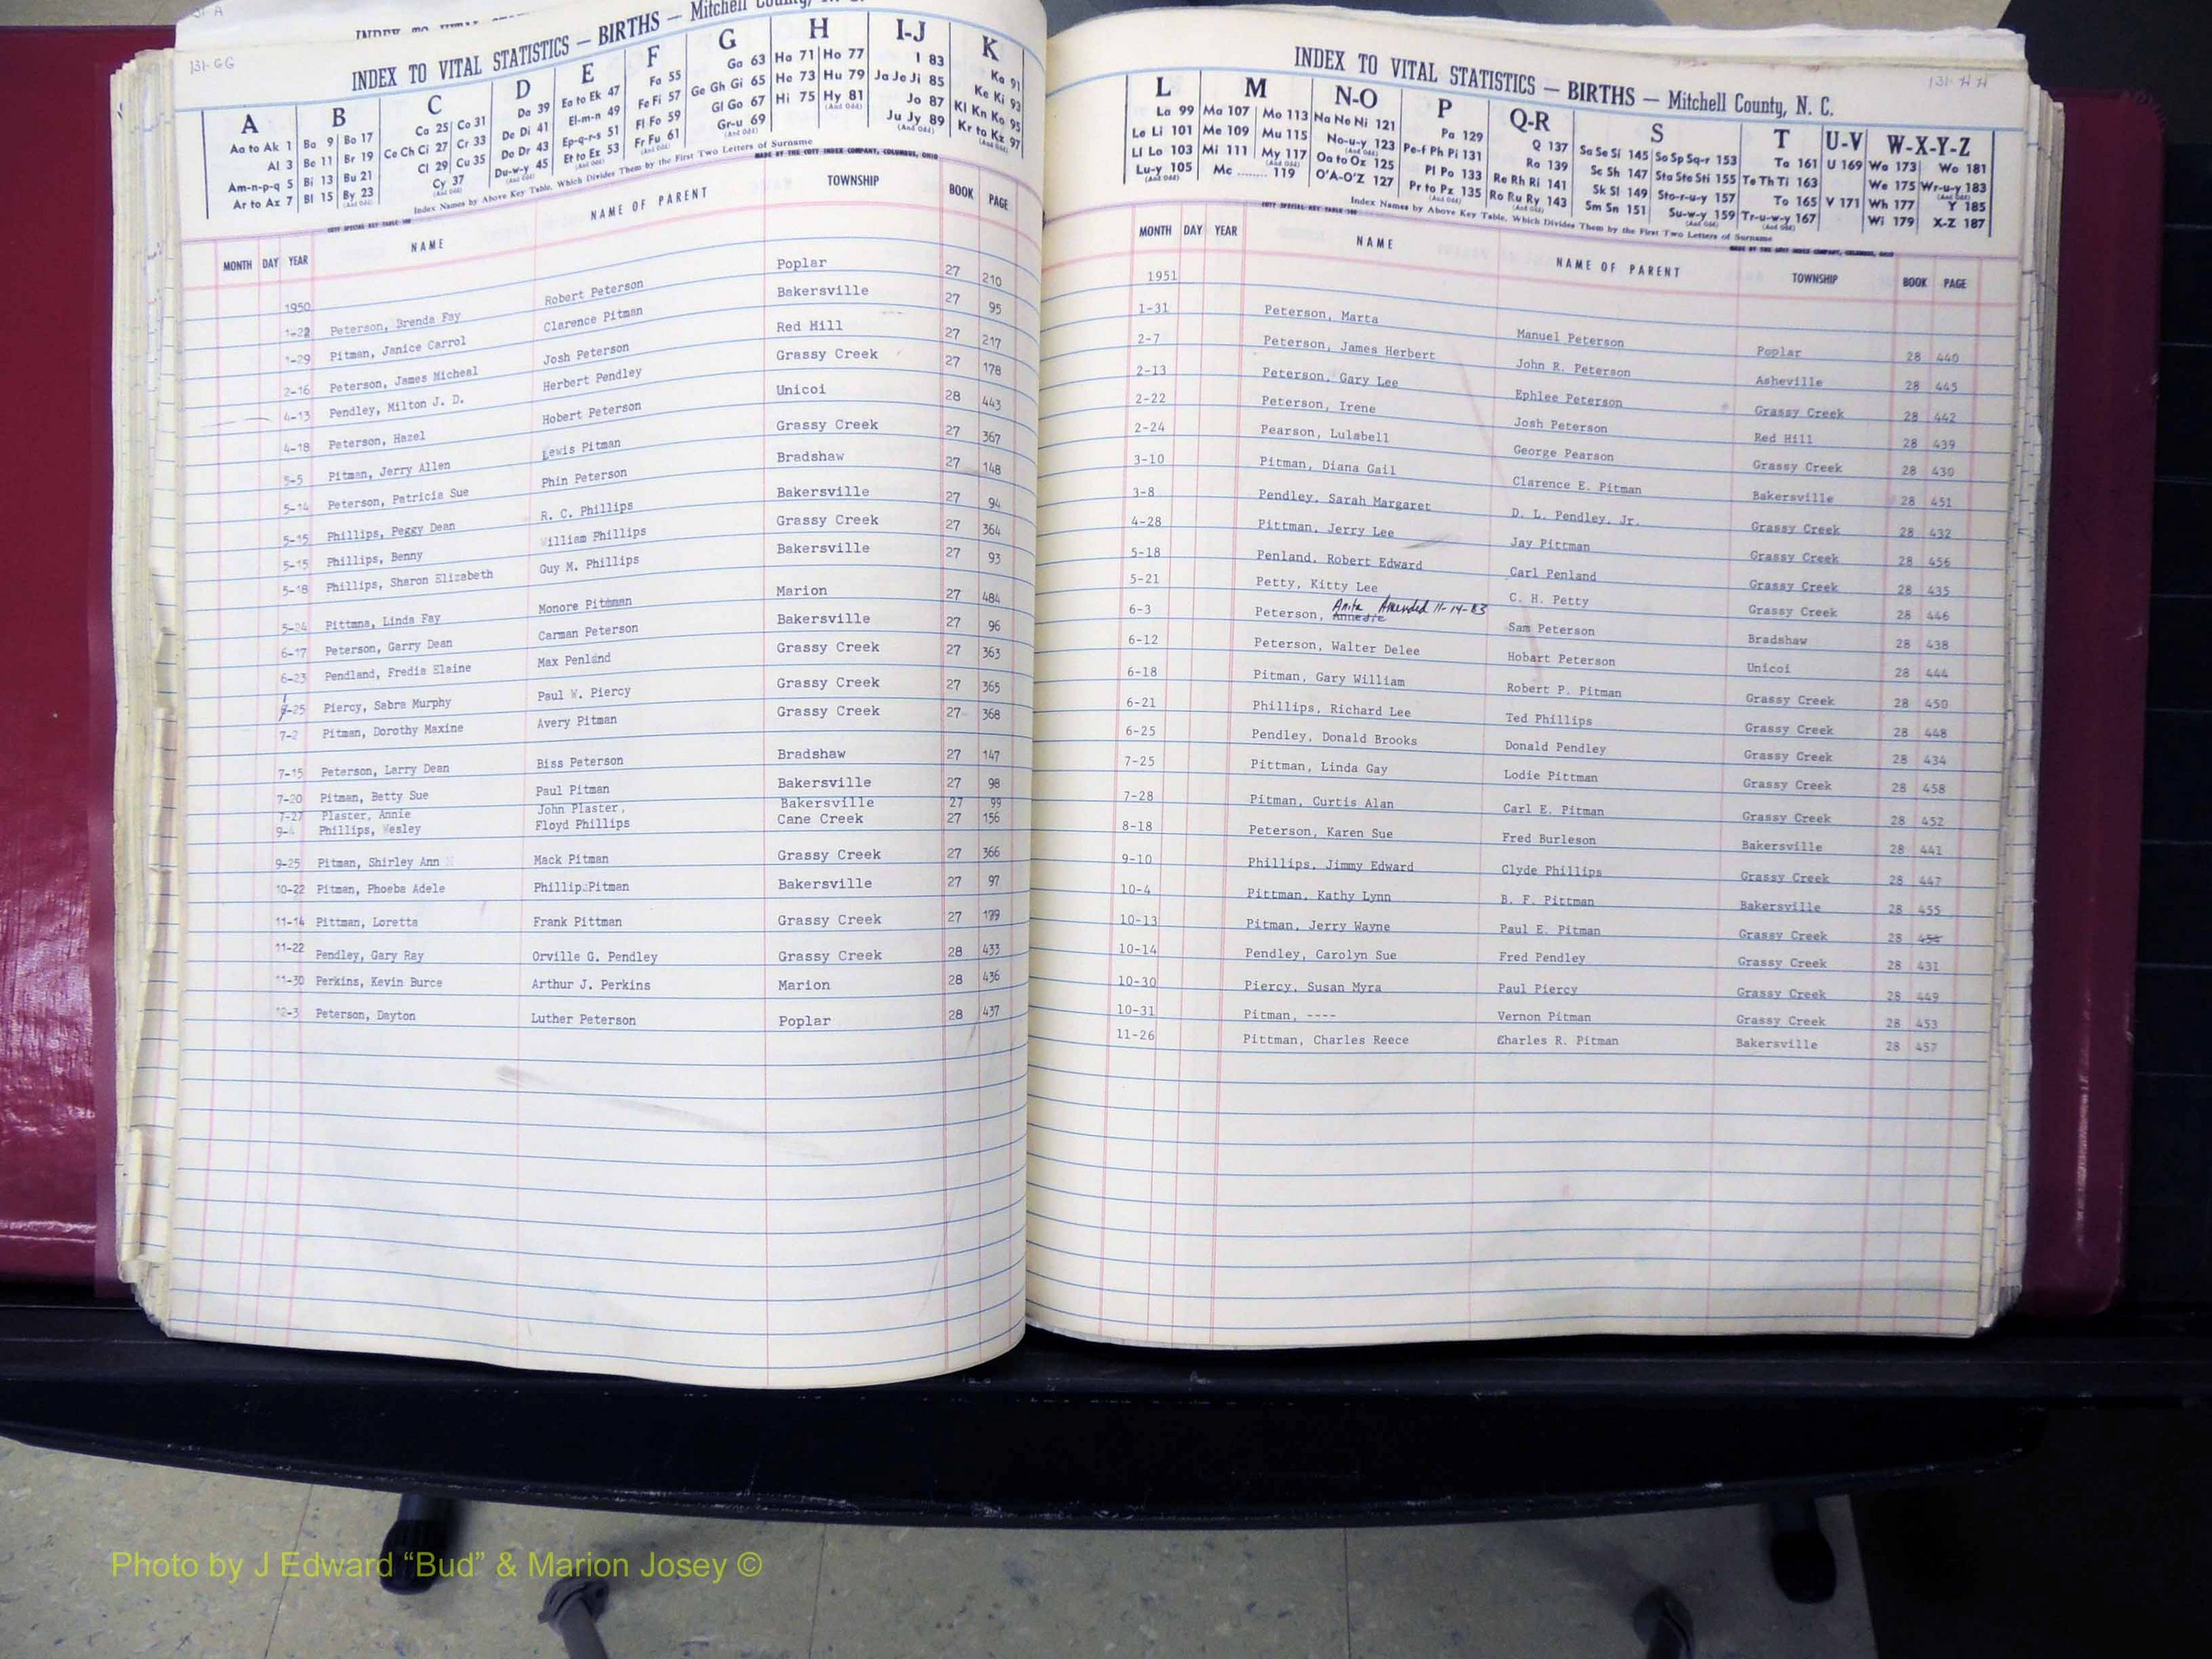 131-GG
INDEX TO VITAL STATISTICS — BIRTHS — Mitchell County,
A B C D E F G H I-J K
Aa to Ak 1 Ba 9 Bo 17 Ca 25 Co 31 Da 39 Ea to Ek 47 Fa 55 Ga 63 Ha 71 Ho 77 I 83 Ka 91
Al 3 Be 11 Br 19 Ce Ch Ci 27 Cr 33 De Di 41 El-m-n 49 Fe Fi 57 Ge Gh Gi 65 He 73 Hu 79 Ja Je Ji 85 Ke Ki 93
Am-n-p-q 5 Bi 13 Bu 21 Cl 29 Cu 35 Do Dr 43 Ep-q-r-s 51 Fl Fo 59 Gl Go 67 Hi 75 Hy 81 (And Odd) Jo 87 Kl Kn Ko 95
Ar to Az 7 Bl 15 By 23 (And Odd) Cy 37 (And Odd) Du-w-y 45 Et to Ez 53 (And Odd) Fr Fu 61 Gr-u 69 (And Odd) Ju Jy 89 (And Odd) Kr to Kz 97
Index Names by Above Key Table, Which Divides Them by the First Two Letters of Surname
COTT SPECIAL KEY TABLE MADE BY THE COTT INDEX COMPANY, COLUMBUS, OHIO
MONTH DAY YEAR NAME NAME OF PARENT TOWNSHIP BOOK PAGE
1950
1-22 Peterson, Brenda Fay Robert Peterson Poplar 27 210
1-29 Pitman, Janice Carrol Clarence Pitman Bakersville 27 95
2-16 Peterson, James Micheal Josh Peterson Red Hill 27 217
4-13 Pendley, Milton J. D. Herbert Pendley Grassy Creek 27 178
4-18 Peterson, Hazel Hobert Peterson Unicoi 28 443
5-5 Pitman, Jerry Allen Lewis Pitman Grassy Creek 27 367
5-14 Peterson, Patricia Sue Phin Peterson Bradshaw 27 148
5-15 Phillips, Peggy Dean R. C. Phillips Bakersville 27 94
5-15 Phillips, Benny William Phillips Grassy Creek 27 364
5-18 Phillips, Sharon Elizabeth Guy M. Phillips Bakersville 27 93
5-24 Pittmna, Linda Fay Monore Pittman Marion 27 484
6-17 Peterson, Garry Dean Carman Peterson Bakersville 27 96
6-23 Pendland, Fredia Elaine Max Penland Grassy Creek 27 363
-25 Piercy, Sabra Murphy Paul W. Piercy Grassy Creek 27 365
7-2 Pitman, Dorothy Maxine Avery Pitman Grassy Creek 27 368
7-15 Peterson, Larry Dean Biss Peterson Bradshaw 27 147
7-20 Pitman, Betty Sue Paul Pitman Bakersville 27 98
7-27 Plaster, Annie John Plaster, Bakersville 27 99
9-4 Phillips, Wesley Floyd Phillips Cane Creek 27 156
9-25 Pitman, Shirley Ann Mack Pitman Grassy Creek 27 366
10-22 Pitman, Phoebe Adele Phillip Pitman Bakersville 27 97
11-14 Pittman, Loretta Frank Pittman Grassy Creek 27 179
11-22 Pendley, Gary Ray Orville G. Pendley Grassy Creek 28 433
11-30 Perkins, Kevin Burce Arthur J. Perkins Marion 28 436
12-3 Peterson, Dayton Luther Peterson Poplar 28 437
131-HH
INDEX TO VITAL STATISTICS — BIRTHS — Mitchell County, N. C.
L M N-O P Q-R S T U-V W-X-Y-Z
La 99 Ma 107 Mo 113 Na Ne Ni 121 Pa 129 Q 137 Sa Se Si 145 So Sp Sq-r 153 Ta 161 U 169 Wa 173 Wo 181
Le Li 101 Me 109 Mu 115 No-u-y 123 (And Odd) Pe-f Ph Pi 131 Ra 139 Sc Sh 147 Sta Ste Sti 155 Te Th Ti 163 We 175 Wr-u-y 183 (And Odd)
Ll Lo 103 Mi 111 My 117 (And Odd) Oa to Oz 125 Pl Po 133 Re Rh Ri 141 Sk Sl 149 Sto-r-u-y 157 To 165 V 171 Wh 177 Y 185
Lu-y 105 (And Odd) Mc ........ 119 O'A-O'Z 127 Pr to Pz 135 (And Odd) Ro Ru Ry 143 (And Odd) Sm Sn 151 Su-w-y 159 (And Odd) Tr-u-w-y 167 (And Odd) Wi 179 X-Z 187
Index Names by Above Key Table, Which Divides Them by the First Two Letters of Surname
COTT SPECIAL KEY TABLE MADE BY THE COTT INDEX COMPANY, COLUMBUS, OHIO
MONTH DAY YEAR NAME NAME OF PARENT TOWNSHIP BOOK PAGE
1951
1-31 Peterson, Marta Manuel Peterson Poplar 28 440
2-7 Peterson, James Herbert John R. Peterson Asheville 28 445
2-13 Peterson, Gary Lee Ephlee Peterson Grassy Creek 28 442
2-22 Peterson, Irene Josh Peterson Red Hill 28 439
2-24 Pearson, Lulabell George Pearson Grassy Creek 28 430
3-10 Pitman, Diana Gail Clarence E. Pitman Bakersville 28 451
3-8 Pendley, Sarah Margaret D. L. Pendley, Jr. Grassy Creek 28 432
4-28 Pittman, Jerry Lee Jay Pittman Grassy Creek 28 456
5-18 Penland, Robert Edward Carl Penland Grassy Creek 28 435
5-21 Petty, Kitty Lee C. H. Petty Grassy Creek 28 446
6-3 Peterson, Annedie Anita Amended 11-14-83 Sam Peterson Bradshaw 28 438
6-12 Peterson, Walter Delee Hobart Peterson Unicoi 28 444
6-18 Pitman, Gary William Robert P. Pitman Grassy Creek 28 450
6-21 Phillips, Richard Lee Ted Phillips Grassy Creek 28 448
6-25 Pendley, Donald Brooks Donald Pendley Grassy Creek 28 434
7-25 Pittman, Linda Gay Lodie Pittman Grassy Creek 28 458
7-28 Pitman, Curtis Alan Carl E. Pitman Grassy Creek 28 452
8-18 Peterson, Karen Sue Fred Burleson Bakersville 28 441
9-10 Phillips, Jimmy Edward Clyde Phillips Grassy Creek 28 447
10-4 Pittman, Kathy Lynn B. F. Pittman Bakersville 28 455
10-13 Pitman, Jerry Wayne Paul E. Pitman Grassy Creek 28 454
10-14 Pendley, Carolyn Sue Fred Pendley Grassy Creek 28 431
10-30 Piercy, Susan Myra Paul Piercy Grassy Creek 28 449
10-31 Pitman, ---- Vernon Pitman Grassy Creek 28 453
11-26 Pittman, Charles Reece Charles R. Pitman Bakersville 28 457
Photo by J Edward “Bud” & Marion Josey ©